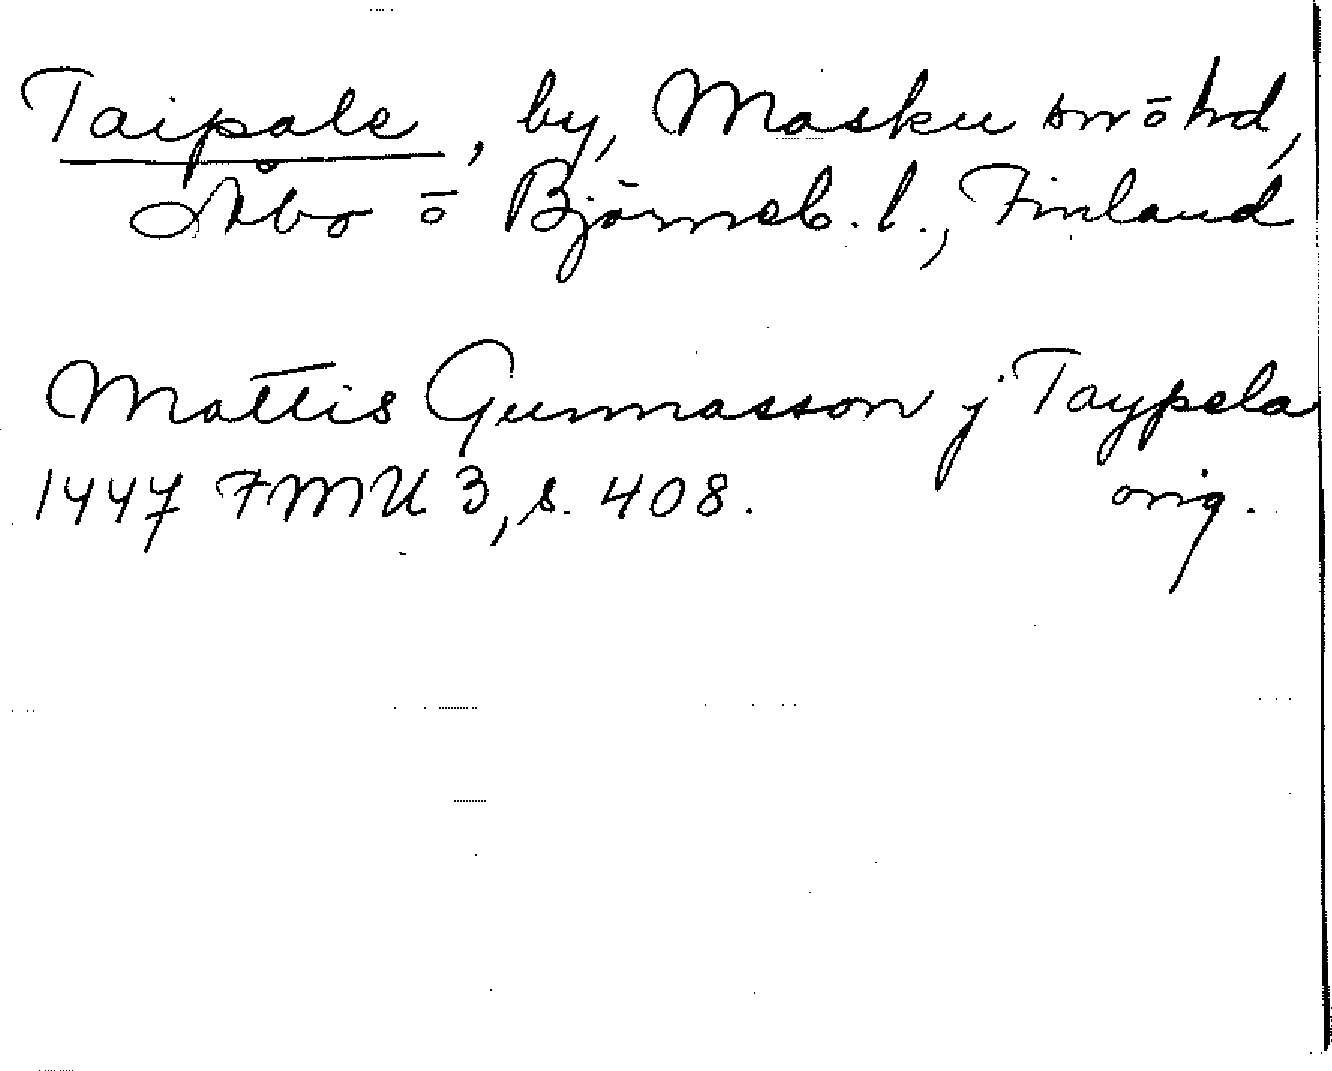 Taipale, by, Masku sn ö hd,
Åbo ö Björneb. l., Finland
Mattis Gunnasson j Taypela
1447 FMU 3, s. 408. orig.